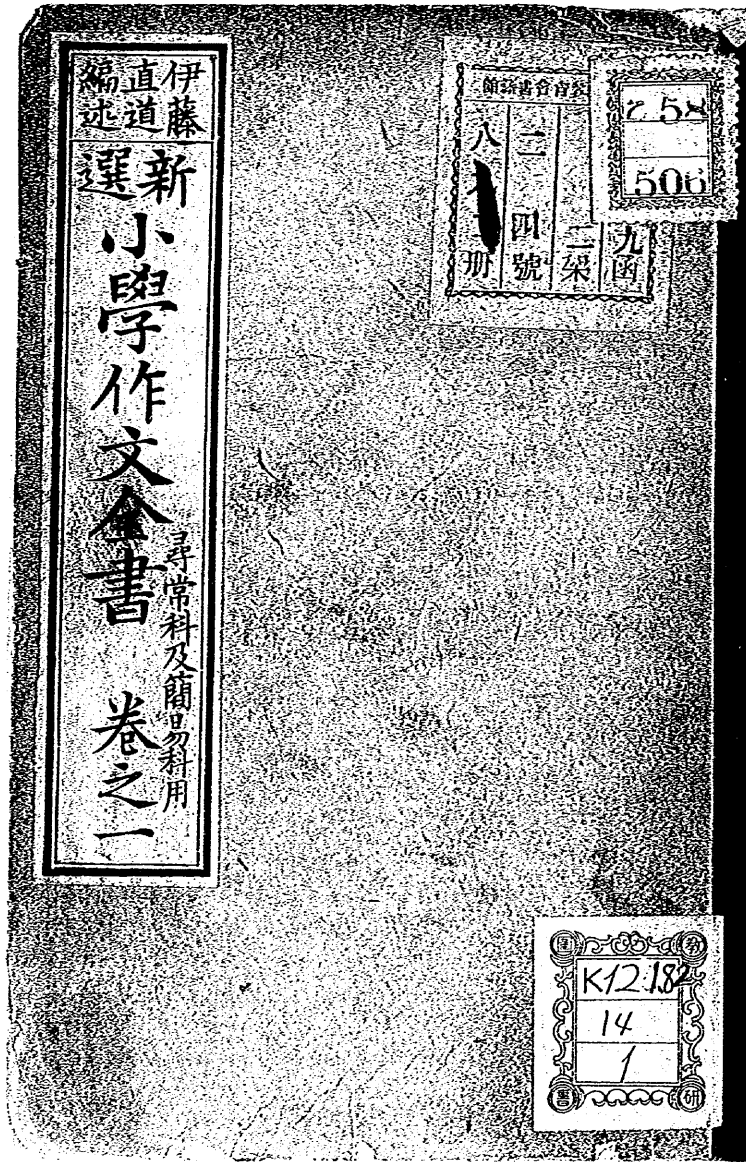 伊藤
直道
編述
新選
小學作文全書
尋常科及簡易科用
卷之一
書籍館
九函
二架
二四號
八
冊
58
506
K12.182
14
1